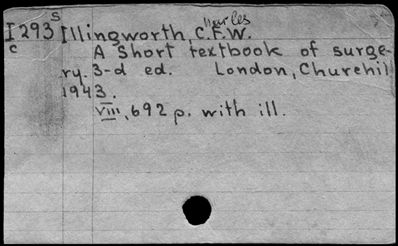 s
I 293 Illingworth, C.F.W.
c A Short textbook of surge-
ry. 3-d ed. London, Churchil
1943.
VIII, 692 p. with ill.